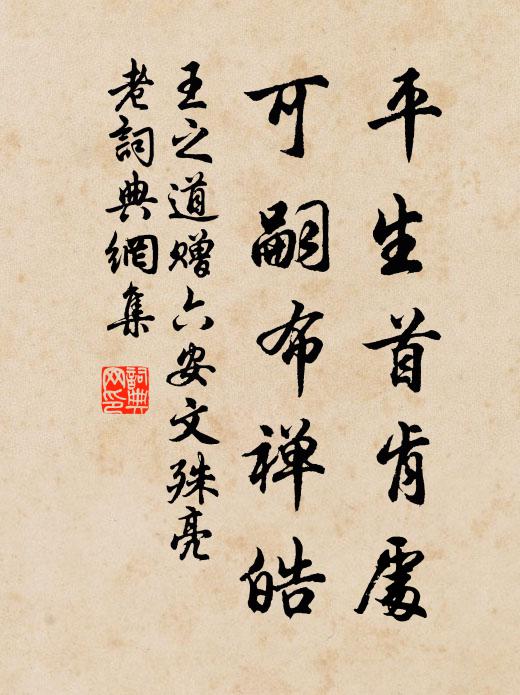 平生首肯處
可嗣布禅皓
王之道赠六安文殊亮
老詞典網集
詞典
网印